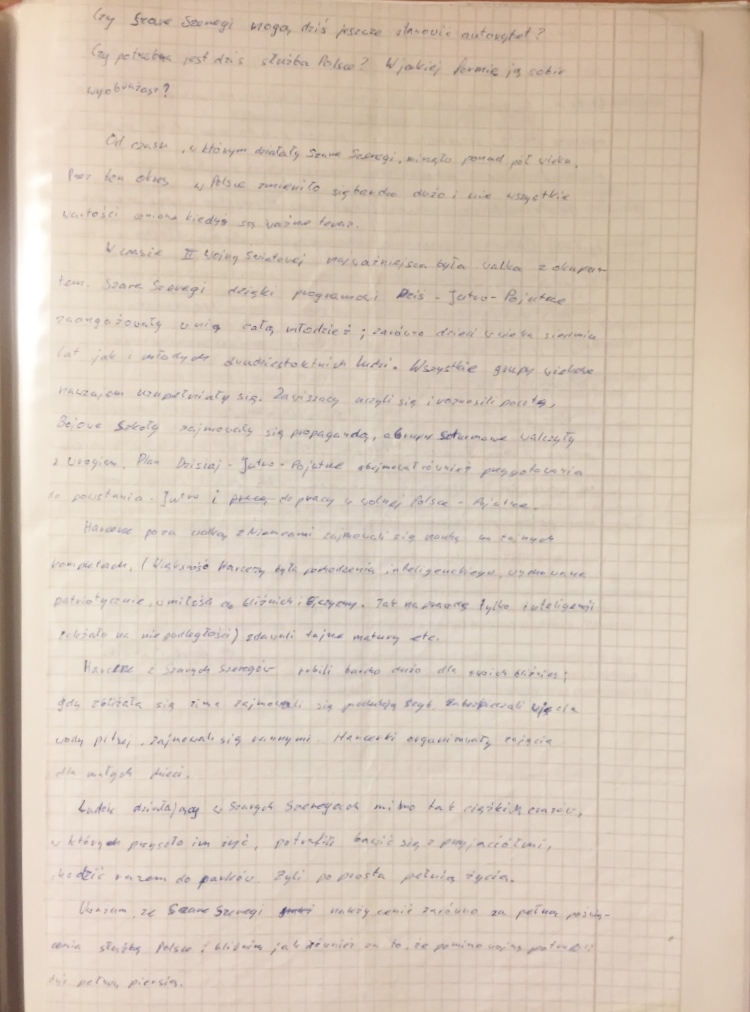 Czy Szare Szeregi mogą dziś jeszcze stanowić autorytet?
Czy potrzebna jest dziś służba Polsce? W jakiej formie ją sobie
wyobrażasz?
Od czasu, w którym działały Szare Szeregi, minęło ponad pół wieku.
Przez ten okres w Polsce zmieniło się bardzo dużo i nie wszystkie
wartości cenione kiedyś są ważne teraz.
W czasie II Wojny Światowej najważniejsza była walka z okupan-
tem. Szare Szeregi dzięki programowi Dziś - Jutro - Pojutrze
zaangażowały w nią całą młodzież; zarówno dzieci w wieku siedmiu
lat jak i młodych dwudziestoletnich ludzi. Wszystkie grupy wiekowe
nawzajem uzupełniały się. Zawiszacy uczyli się i roznosili pocztę,
Bojowe Szkoły zajmowały się propagandą, a Grupy Szturmowe walczyły
z wrogiem. Plan Dzisiaj - Jutro - Pojutrze obejmował również przygotowania
do powstania - Jutro i do pracy w wolnej Polsce - Pojutrze.
Harcerze poza walką z Niemcami zajmowali się nauką na tajnych
kompletach. (Większość Harcerzy była pochodzenia inteligenckiego, wychowana
patriotycznie, w miłości do bliźnich i Ojczyzny. Tak naprawdę tylko inteligencji
zależało na niepodległości) zdawali tajne matury etc.
Harcerze z Szarych Szeregów robili bardzo dużo dla swoich bliźnich;
gdy zbliżała się zima zajmowali się szyb zabezpieczali ujęcia
wody pitnej, zajmowali się rannymi. Harcerki organizowały zajęcia
dla małych dzieci.
Ludzie działający w Szarych Szeregach mimo tak ciężkich czasów,
w których przyszło im żyć, potrafili bawić się z przyjaciółmi,
chodzić razem do parków. Żyli po prostu pełnią życia.
Uważam, że Szare Szeregi należy cenić zarówno za pełną poświę-
cenia służbę Polsce i bliźnim jak również za to, że pomimo wojny potrafili
żyć pełną piersią.